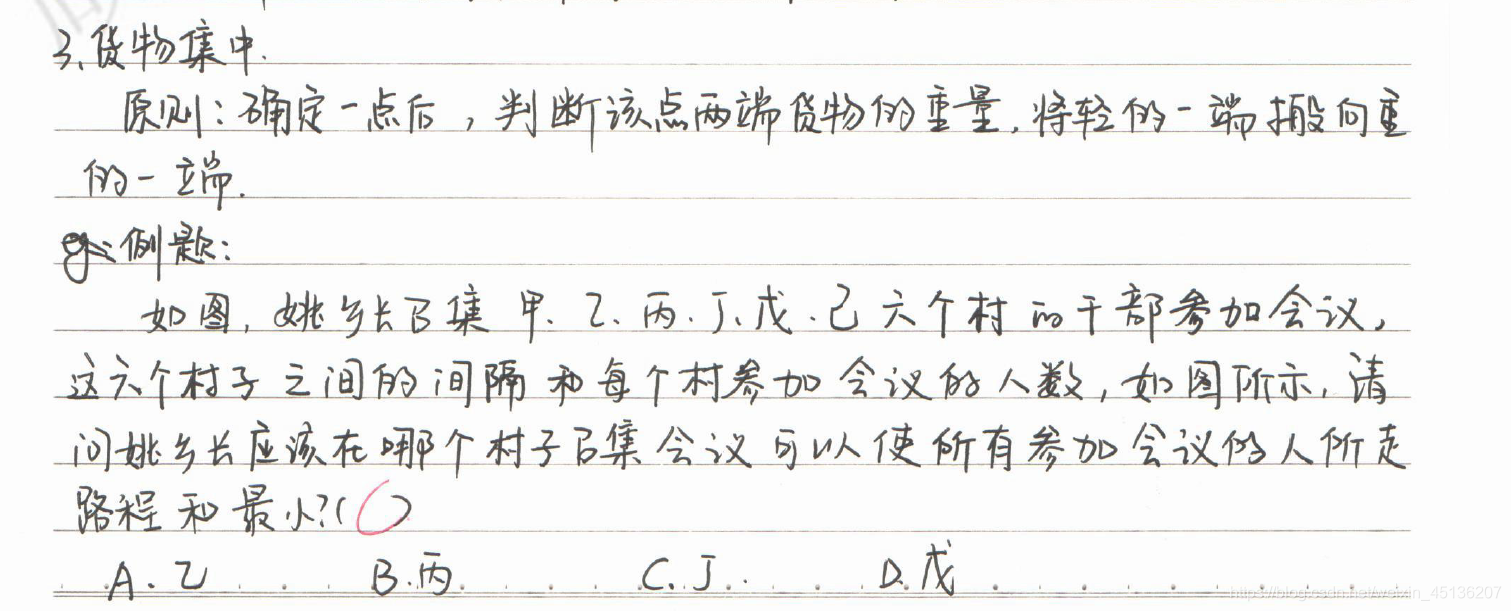 3.货物集中.
原则:确定一点后,判断该点两端货物的重量.将轻的一端搬向重
的一端.
例题:
如图,姚乡长召集甲.乙.丙.丁.戊.己六个村的干部参加会议,
这六个村子之间的间隔和每个村参加会议的人数,如图所示,请
问姚乡长应该在哪个村子召集会议可以使所有参加会议的人所走
路程和最小?( )
A.乙 B.丙. C.丁. D.戊
https://blog.csdn.net/weixin_45136207